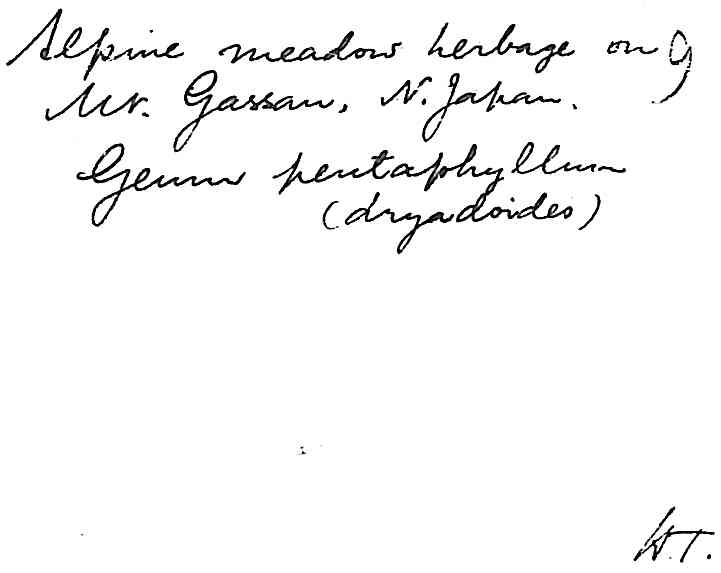 Alpine meadow herbage on 9
Mt. Gassan, N. Japan.
Geum pentaphyllum
(dryadoides)
H.T.